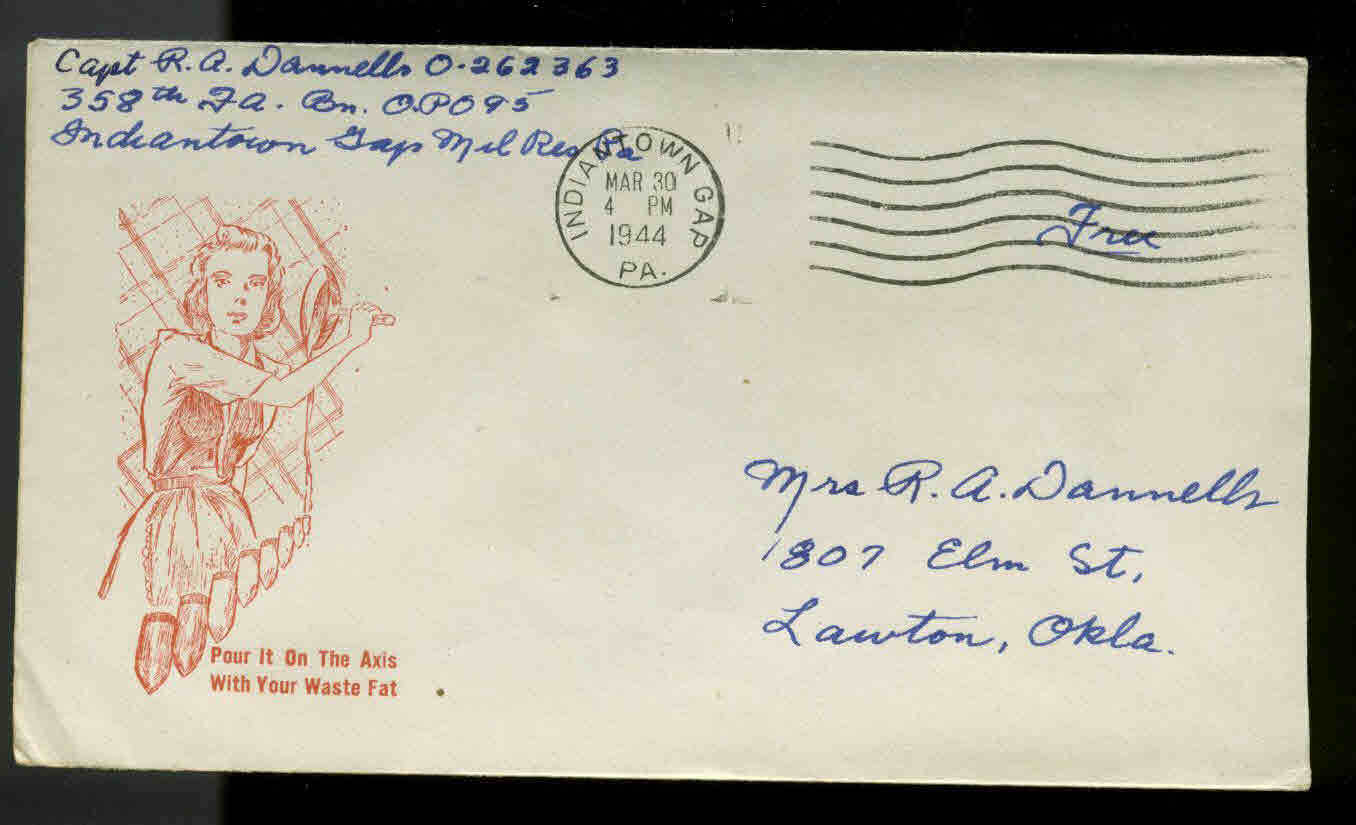 Capt R. A. Dannells O-262363
358th F.A. Bn. A.P.O 95
Indiantown Gap Mil Res Pa
INDIANTOWN GAP
MAR 30
4 PM
1944
PA.
Free
Mrs R. A. Dannells
1807 Elm St,
Lawton, Okla.
Pour It On The Axis
With Your Waste Fat